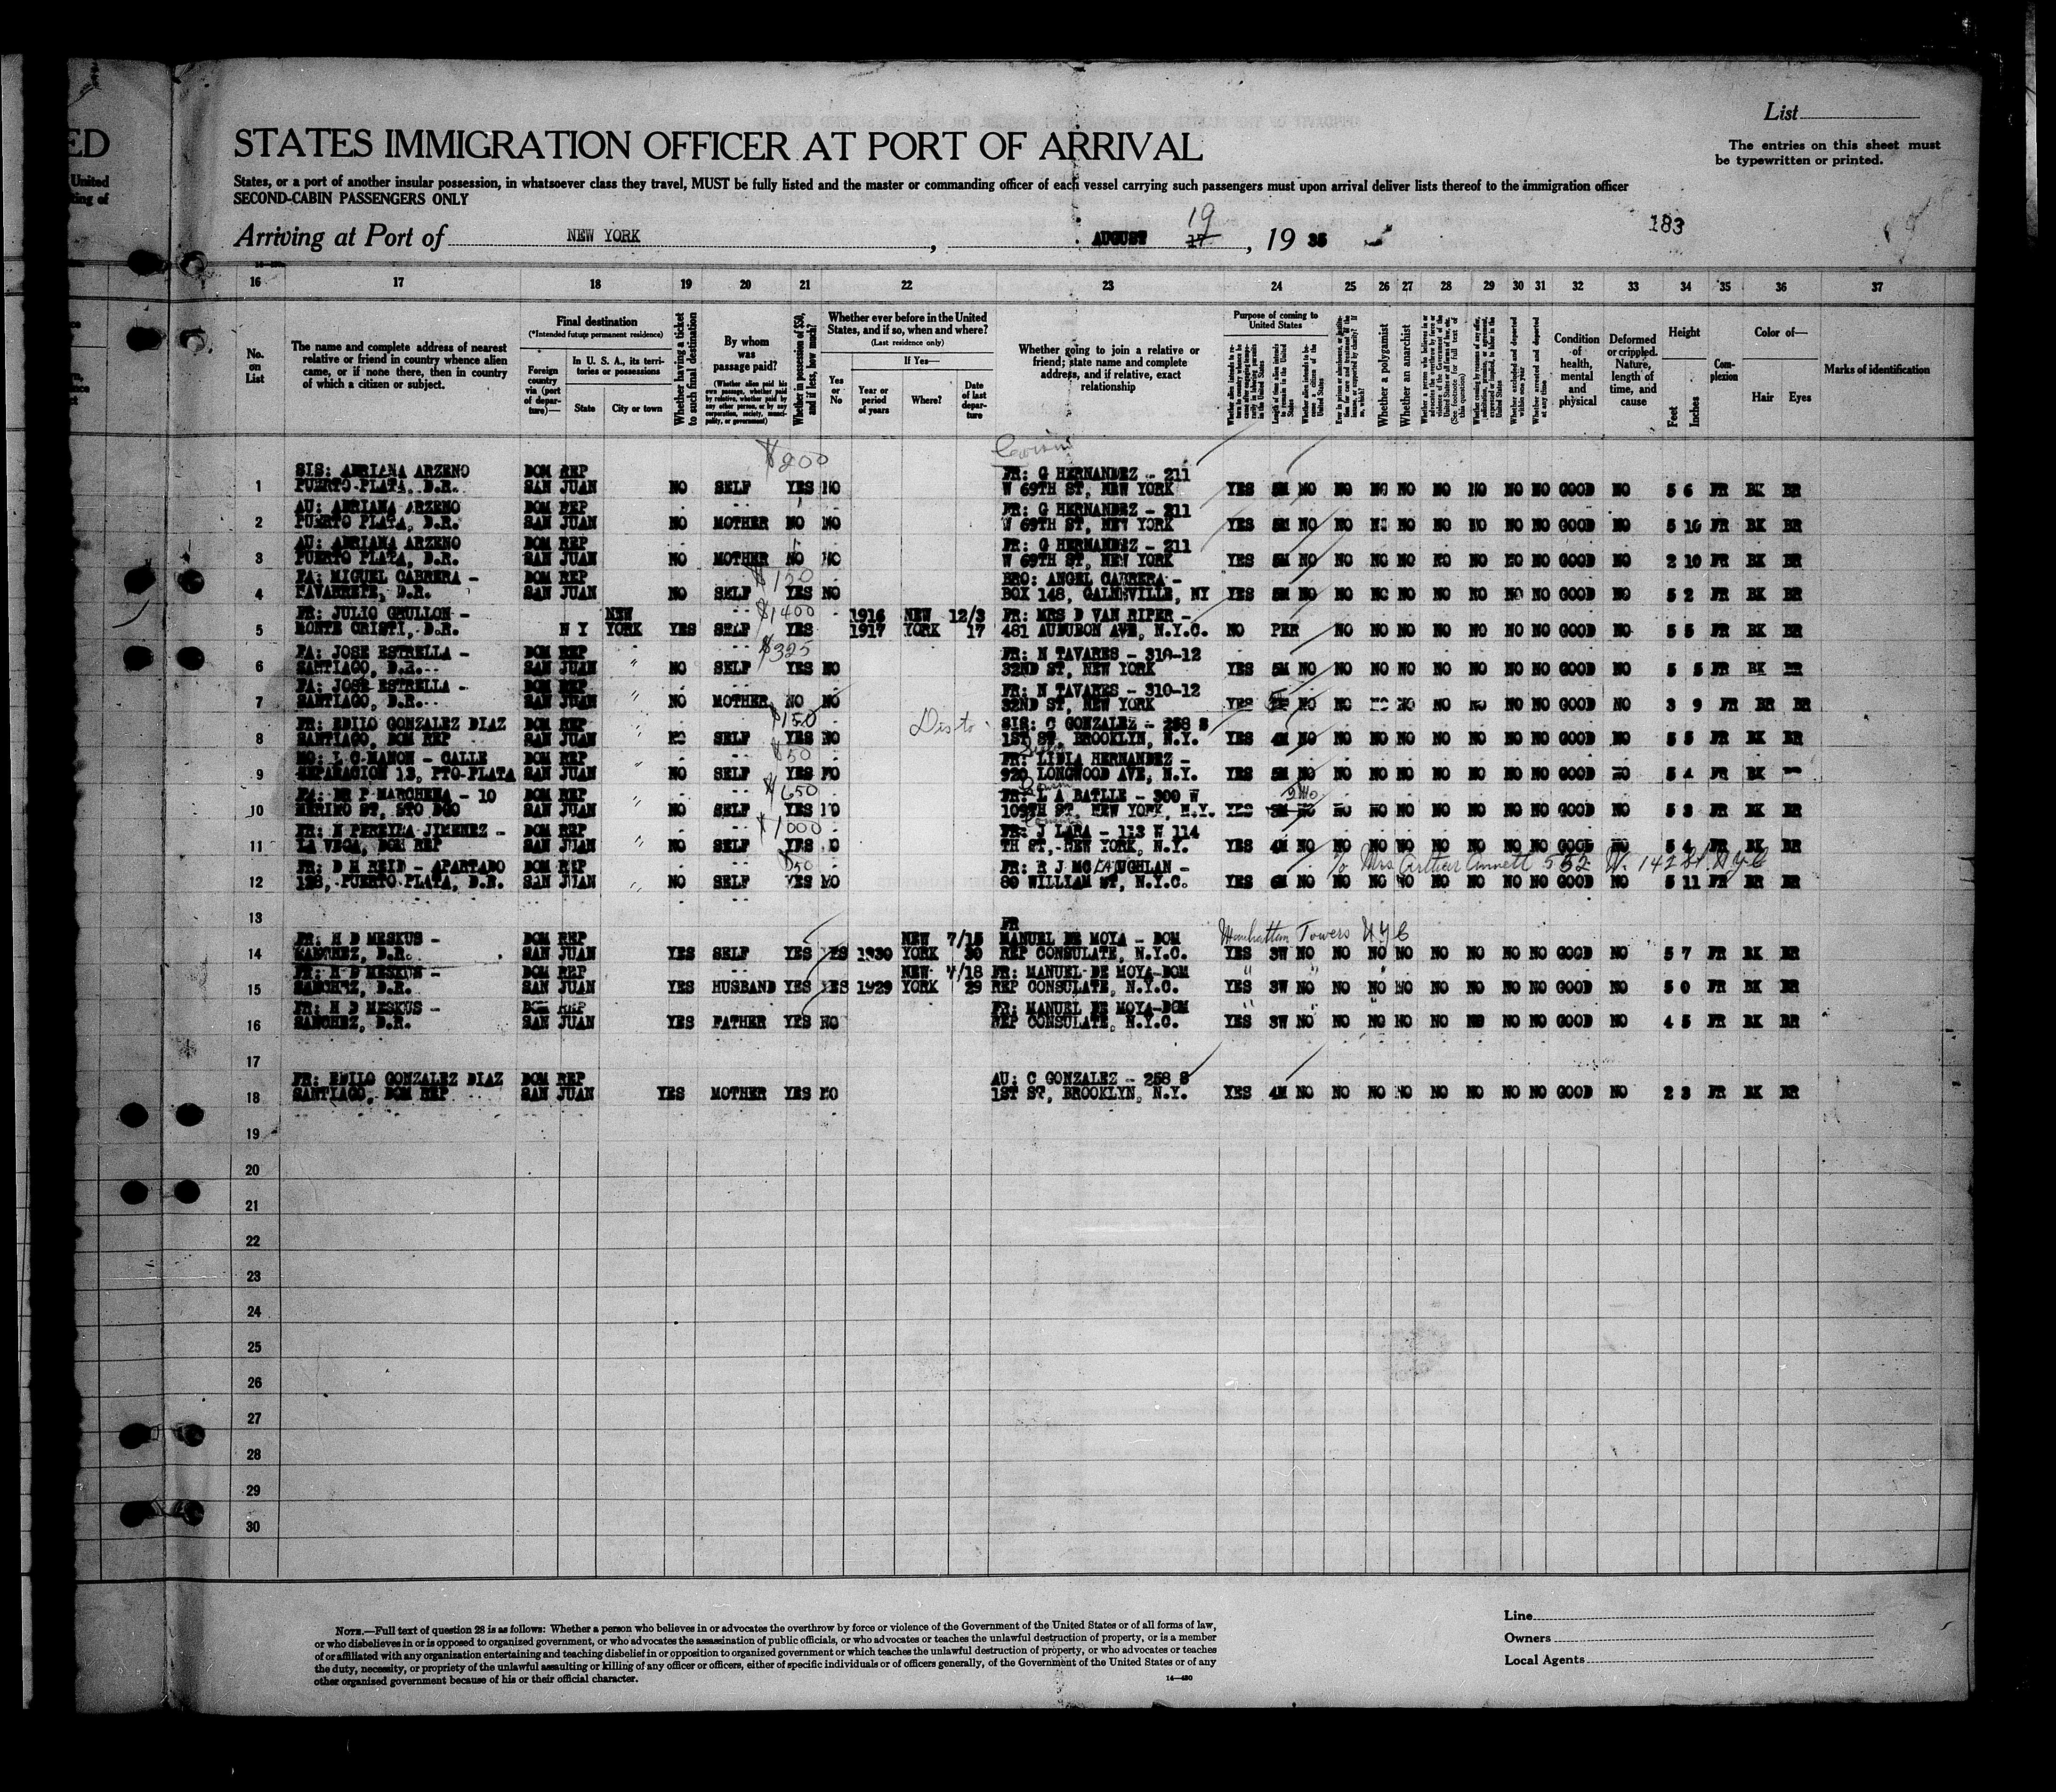 ED
United
ing of
List
STATES IMMIGRATION OFFICER AT PORT OF ARRIVAL
The entries on this sheet must
be typewritten or printed.
States, or a port of another insular possession, in whatsoever class they travel, MUST be fully listed and the master or commanding officer of each vessel carrying such passengers must upon arrival deliver lists thereof to the immigration officer
SECOND-CABIN PASSENGERS ONLY
19
183
Arriving at Port of NEW YORK , AUGUST 17 , 19 35
16 17 18 19 20 21 22 23 24 25 26 27 28 29 30 31 32 33 34 35 36 37
No. on List
The name and complete address of nearest relative or friend in country whence alien came, or if none there, then in country of which a citizen or subject.
Final destination
(*Intended future permanent residence)
Foreign country via (port of departure)—
In U. S. A., its territories or possessions
State
City or town
Whether having a ticket to such final destination
By whom was passage paid?
(Whether alien paid his own passage, whether paid by relative, whether paid by any other person, or by any corporation, society, municipality, or government)
Whether in possession of $50, and if less, how much?
Whether ever before in the United States, and if so, when and where?
(Last residence only)
Yes or No
If Yes—
Year or period of years
Where?
Date of last departure
Whether going to join a relative or friend; state name and complete address, and if relative, exact relationship
Purpose of coming to United States
Whether a polygamist
Whether an anarchist
Condition of health, mental and physical
Deformed or crippled. Nature, length of time, and cause
Height
Feet
Inches
Complexion
Color of—
Hair
Eyes
Marks of identification
$200
SIS: ADRIANA ARZENO DOM REP FR: G HERNANDEZ - 211
1 PUERTO PLATA, D.R. SAN JUAN NO SELF YES NO W 69TH ST, NEW YORK YES 5M NO NO NO NO NO NO NO NO GOOD NO 5 6 FR BK BR
AU: ADRIANA ARZENO DOM REP FR: G HERNANDEZ - 211
2 PUERTO PLATA, D.R. SAN JUAN NO MOTHER NO NO W 69TH ST, NEW YORK YES 5M NO NO NO NO NO NO NO NO GOOD NO 5 10 FR BK BR
AU: ADRIANA ARZENO DOM REP FR: G HERNANDEZ - 211
3 PUERTO PLATA, D.R. SAN JUAN NO MOTHER NO NO W 69TH ST, NEW YORK YES 5M NO NO NO NO NO NO NO NO GOOD NO 2 10 FR BK BR
FA: MIGUEL CABRERA - DOM REP $150 BRO: ANGEL CABRERA -
4 D.R. SAN JUAN NO SELF YES NO BOX 148, NY YES 5M NO NO NO NO NO NO NO NO GOOD NO 5 2 FR BK BR
FR: JULIO GRULLON - NEW $1400 1916 NEW 12/3 FR: MRS D VAN RIPER -
5 MONTE CRISTI, D.R. N Y YORK YES SELF YES 1917 YORK 17 481 AUDUBON AVE, N.Y.C. NO PER NO NO NO NO NO NO NO GOOD NO 5 5 FR BK BR
FA: JOSE ESTRELLA - DOM REP $325 FR: N TAVARES - 310-12
6 SANTIAGO, D.R. SAN JUAN " NO SELF YES NO 32ND ST, NEW YORK YES 5M NO NO NO NO NO NO NO NO GOOD NO 5 5 FR BK BR
FA: JOSE ESTRELLA - DOM REP FR: N TAVARES - 310-12
7 SANTIAGO, D.R. SAN JUAN " NO MOTHER NO NO 32ND ST, NEW YORK YES NO NO NO NO NO NO NO NO GOOD NO 3 9 FR BR BR
FR: EDILO GONZALEZ DIAZ DOM REP $150 SIS: C GONZALEZ - 258 S
8 SANTIAGO, DOM REP SAN JUAN " NO SELF YES NO 1ST ST, BROOKLYN, N.Y. YES 4M NO NO NO NO NO NO NO NO GOOD NO 5 5 FR BK BR
MO: L C MANON - CALLE DOM REP $50 FR: LIDIA HERNANDEZ -
9 SEPARACION 13, PTO-PLATA SAN JUAN " NO SELF YES NO 920 LONGWOOD AVE, N.Y. YES 5M NO NO NO NO NO NO NO NO GOOD NO 5 4 FR BK
FA: DR P MARCHENA - 10 DOM REP $650 Cousin FR: L A BATLLE - 300 W
10 MERINO ST, STO DGO SAN JUAN " NO SELF YES NO 109TH ST, NEW YORK, N.Y. YES NO NO NO NO NO NO NO NO GOOD NO 5 3 FR BK BR
FR: N PEREYRA JIMENEZ - DOM REP $1000 Cousin FR: J LARA - 113 W 114
11 LA VEGA, DOM REP SAN JUAN " NO SELF YES NO TH ST, NEW YORK, N.Y. YES 4M NO NO NO NO NO NO NO NO GOOD NO 5 4 FR BK BR
FR: D H REID - APARTADO DOM REP $50 FR: R J MCLAUGHLAN - Mrs Arthur Annett 552 W. 142 St N.Y.C
12 128, PUERTO PLATA, D.R. SAN JUAN " NO SELF YES NO 80 WILLIAM ST, N.Y.C. YES 6M NO NO NO NO NO NO NO NO GOOD NO 5 11 FR BR BR
13 FR
FR: H D MESKUS - DOM REP NEW 7/15 MANUEL DE MOYA - DOM Manhattan Towers N.Y.C
14 SANCHEZ, D.R. SAN JUAN YES SELF YES YES 1930 YORK 30 REP CONSULATE, N.Y.C. YES 3W NO NO NO NO NO NO NO NO GOOD NO 5 7 FR BK BR
FR: H D MESKUS - DOM REP NEW 4/18 FR: MANUEL DE MOYA-DOM " " "
15 SANCHEZ, D.R. SAN JUAN YES HUSBAND YES YES 1929 YORK 29 REP CONSULATE, N.Y.C. YES 3W NO NO NO NO NO NO NO NO GOOD NO 5 0 FR BK BR
FR: H D MESKUS - DOM REP FR: MANUEL DE MOYA-DOM
16 SANCHEZ, D.R. SAN JUAN YES FATHER YES NO REP CONSULATE, N.Y.C. YES 3W NO NO NO NO NO NO NO NO GOOD NO 4 5 FR BK BR
17
FR: EDILO GONZALEZ DIAZ DOM REP AU: C GONZALEZ - 258 S
18 SANTIAGO, DOM REP SAN JUAN YES MOTHER YES NO 1ST ST, BROOKLYN, N.Y. YES 4M NO NO NO NO NO NO NO NO GOOD NO 2 3 FR BK BR
19
20
21
22
23
24
25
26
27
28
29
30
NOTE.—Full text of question 28 is as follows: Whether a person who believes in or advocates the overthrow by force or violence of the Government of the United States or of all forms of law,
or who disbelieves in or is opposed to organized government, or who advocates the assassination of public officials, or who advocates or teaches the unlawful destruction of property, or is a member
of or affiliated with any organization entertaining and teaching disbelief in or opposition to organized government or which teaches the unlawful destruction of property, or who advocates or teaches
the duty, necessity, or propriety of the unlawful assaulting or killing of any officer or officers, either of specific individuals or of officers generally, of the Government of the United States or of any
other organized government because of his or their official character.
14—430
Line
Owners
Local Agents